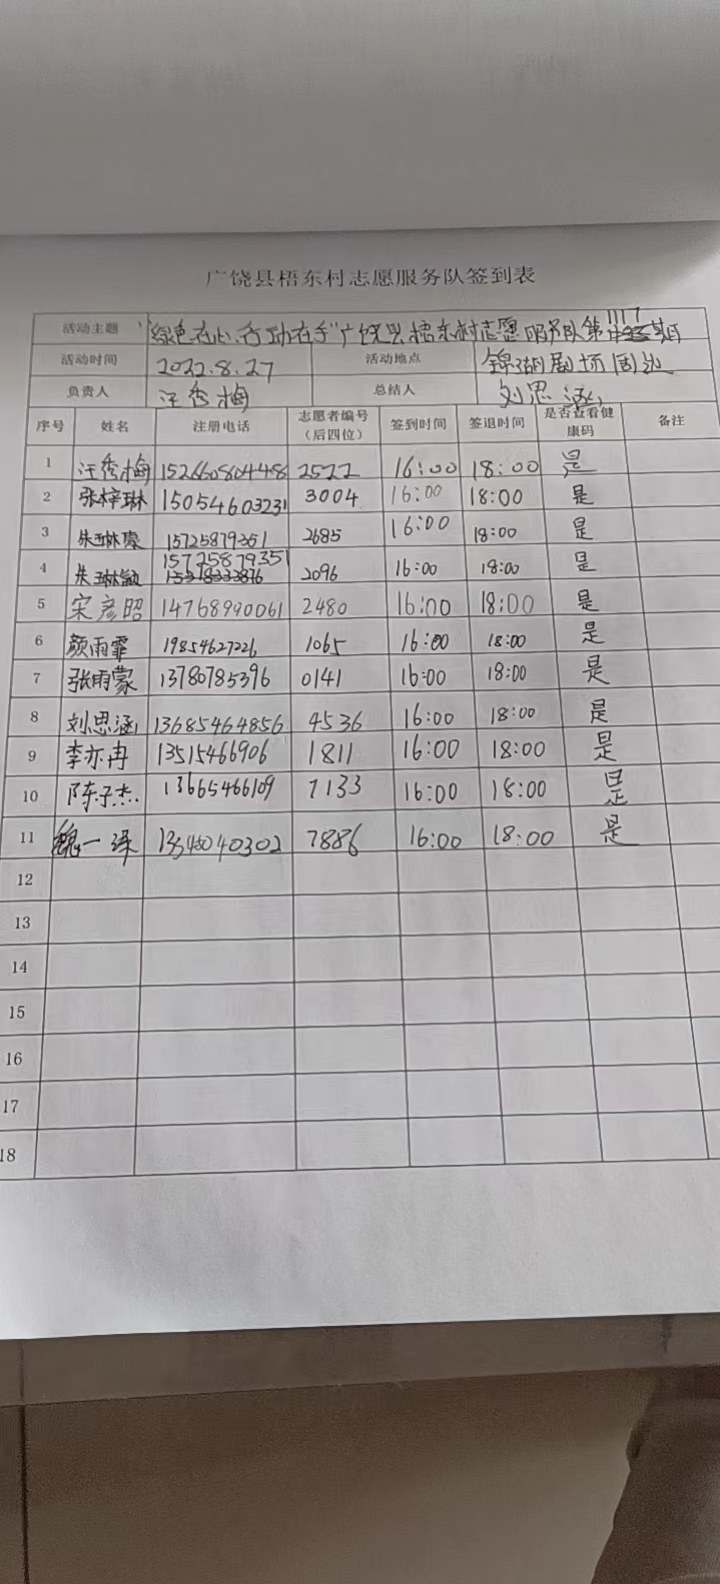 广饶县梧东村志愿服务队签到表
活动主题 "绿色在心，行动在手"广饶县梧东村志愿服务队第 期
活动时间 2022.8.27 活动地点 锦湖剧场周边
负责人 汪秀梅 总结人 刘思涵
序号 姓名 注册电话 志愿者编号（后四位） 签到时间 签退时间 是否查看健康码 备注
1 汪秀梅 2522 16:00 18:00 是
2 张梓琳 15054603231 3004 16:00 18:00 是
3 朱琳 15725879351 2685 16:00 18:00 是
4 朱琳 15725879351 2096 16:00 18:00 是
5 宋彦昭 14768990061 2480 16:00 18:00 是
6 颜雨霏 19854627226 1065 16:00 18:00 是
7 张雨蒙 13780785396 0141 16:00 18:00 是
8 刘思涵 13685464856 4536 16:00 18:00 是
9 李亦冉 13515466906 1811 16:00 18:00 是
10 陈子杰 13665466109 7133 16:00 18:00 是
11 魏一 7886 16:00 18:00 是
12
13
14
15
16
17
18